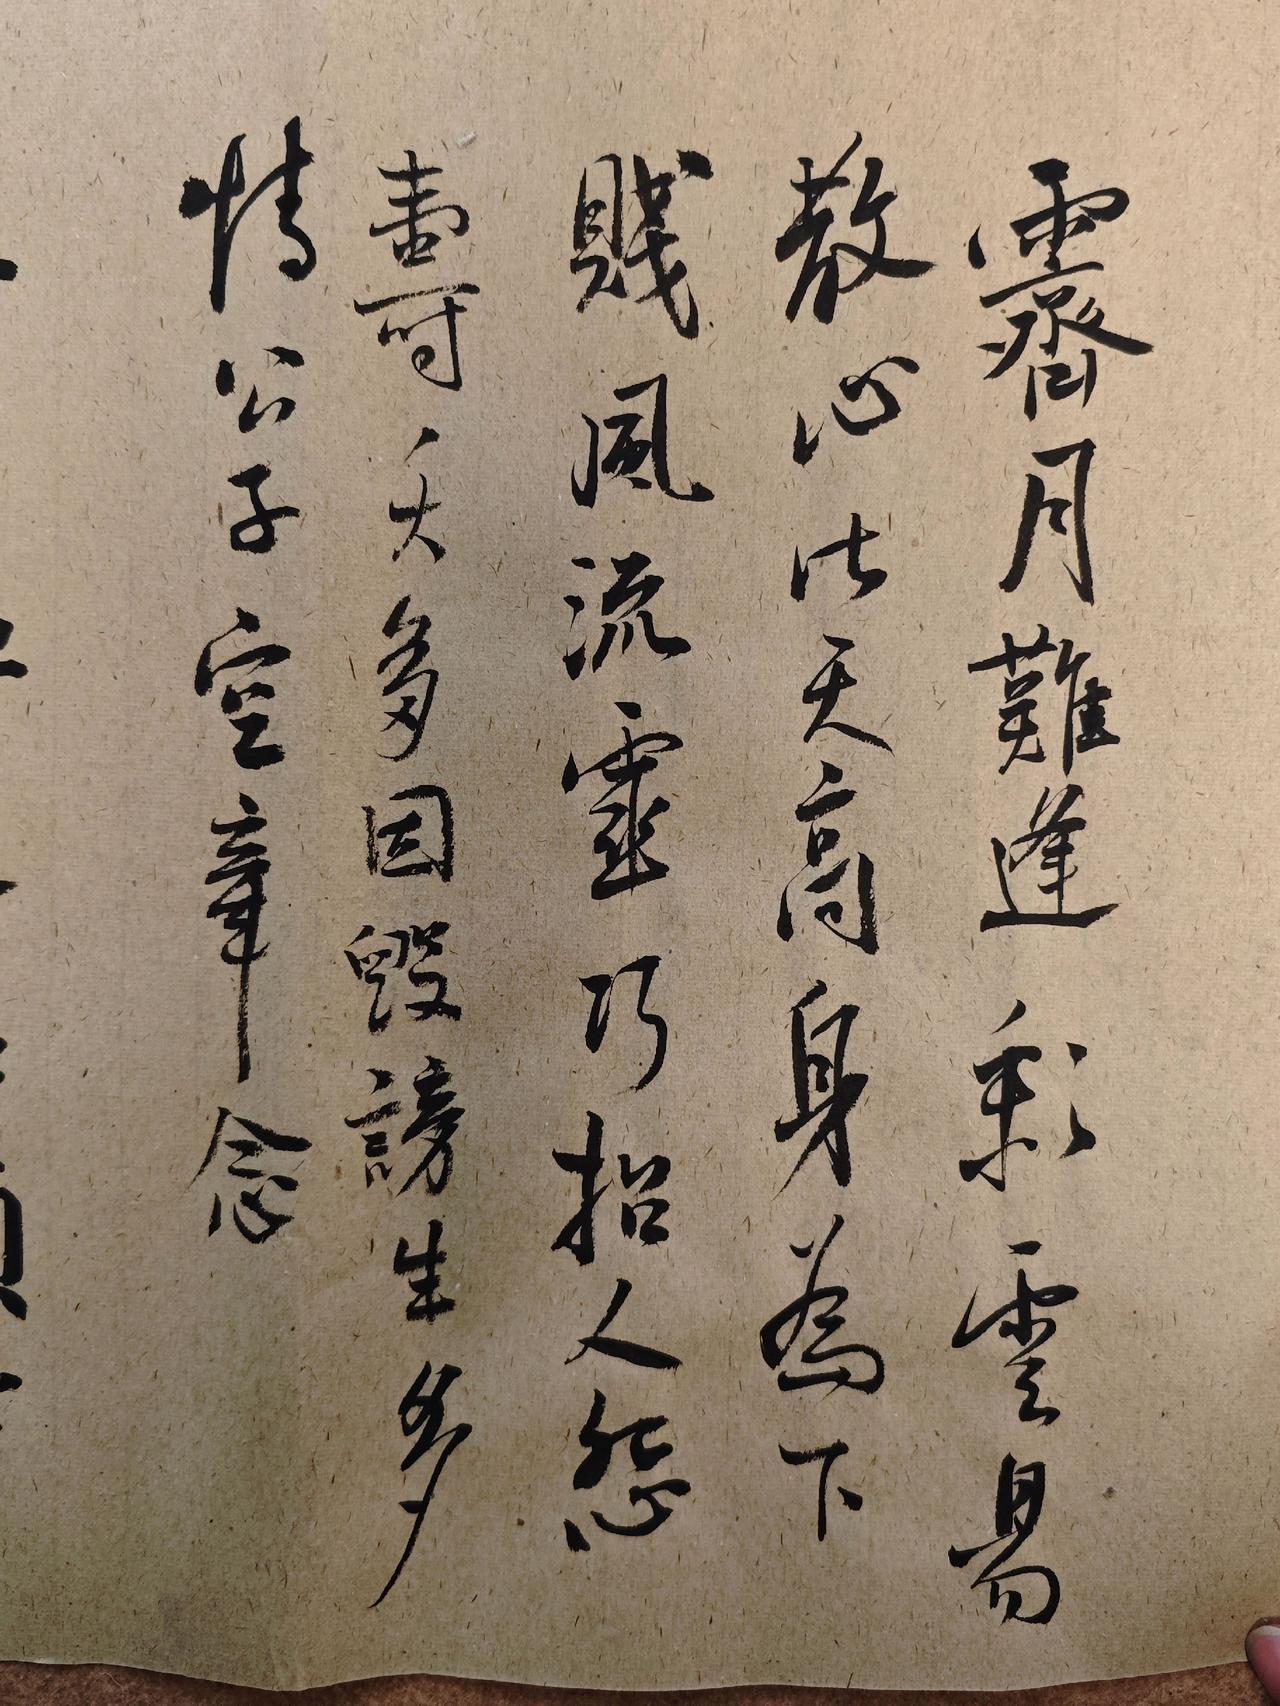 霽月難逢彩雲易
散心比天高身為下
賤風流靈巧招人怨
壽夭多因毀謗生多
情公子空牽念